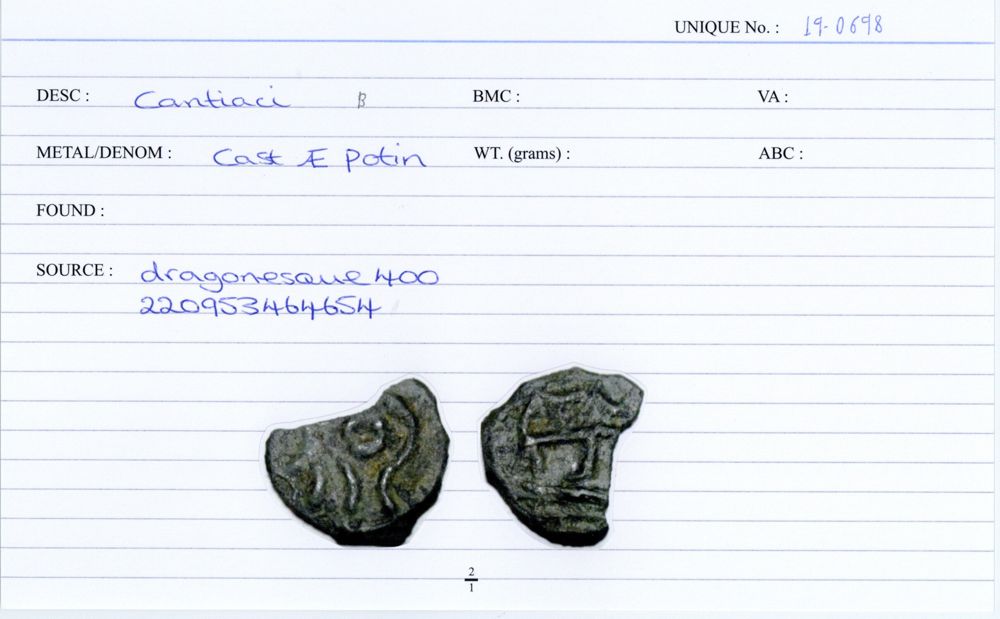 UNIQUE No. : 19-0698
DESC : Cantiaci B BMC : VA :
METAL/DENOM : Cast Æ Potin WT. (grams) : ABC :
FOUND :
SOURCE : dragonesque400
220953464654
2
1